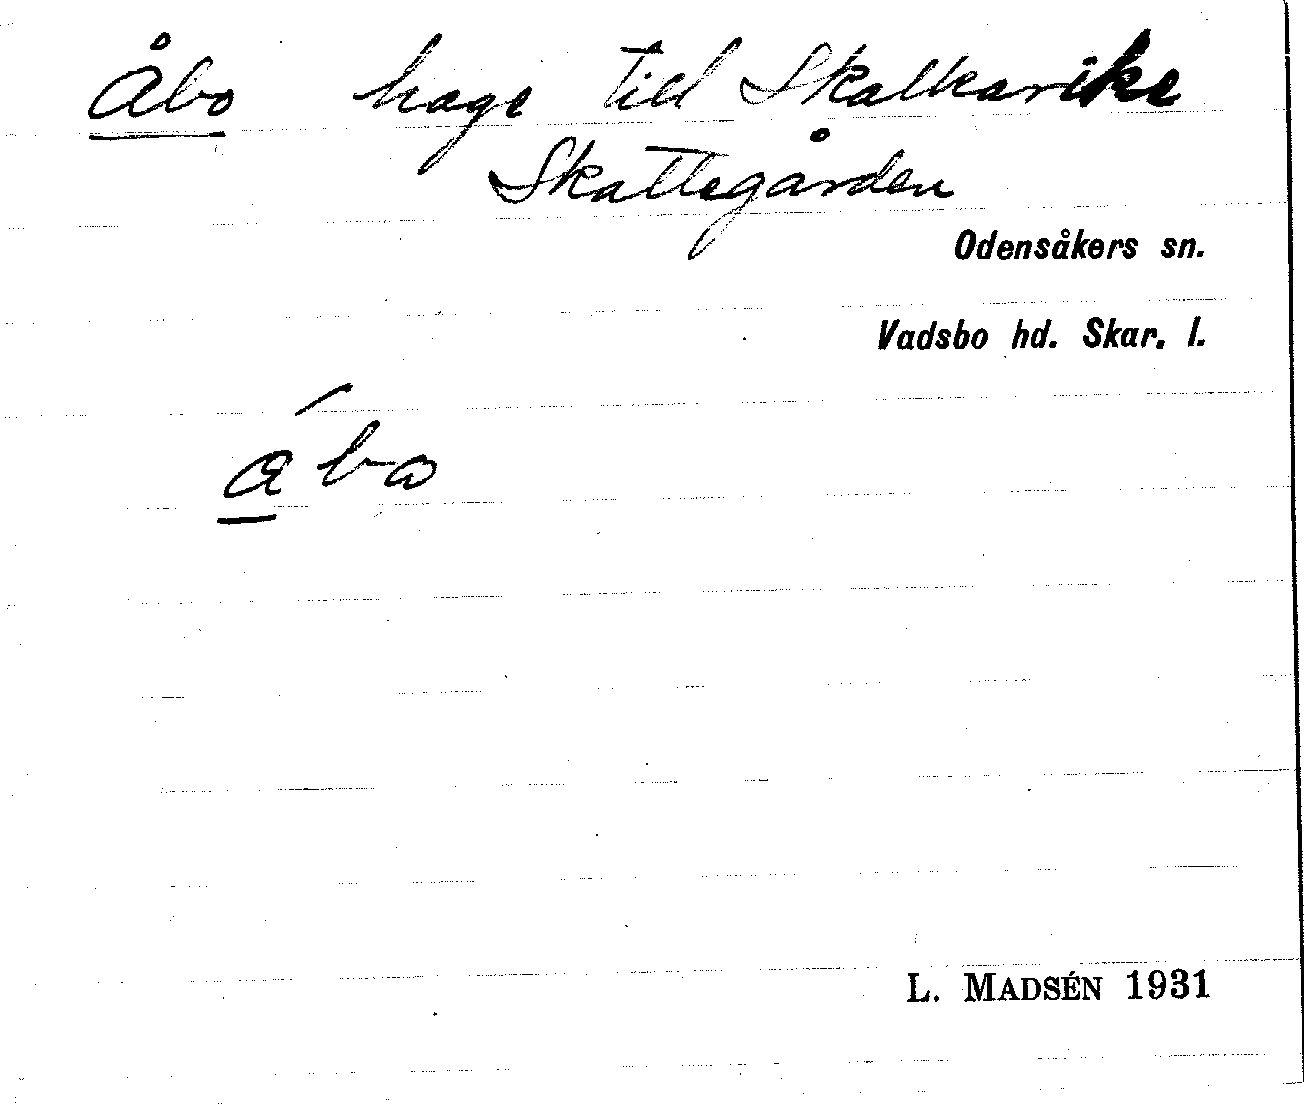 Åbo hage till Skalkarike
Skattegården
Odensåkers sn.
Vadsbo hd. Skar. l.
ábo
L. MADSÉN 1931